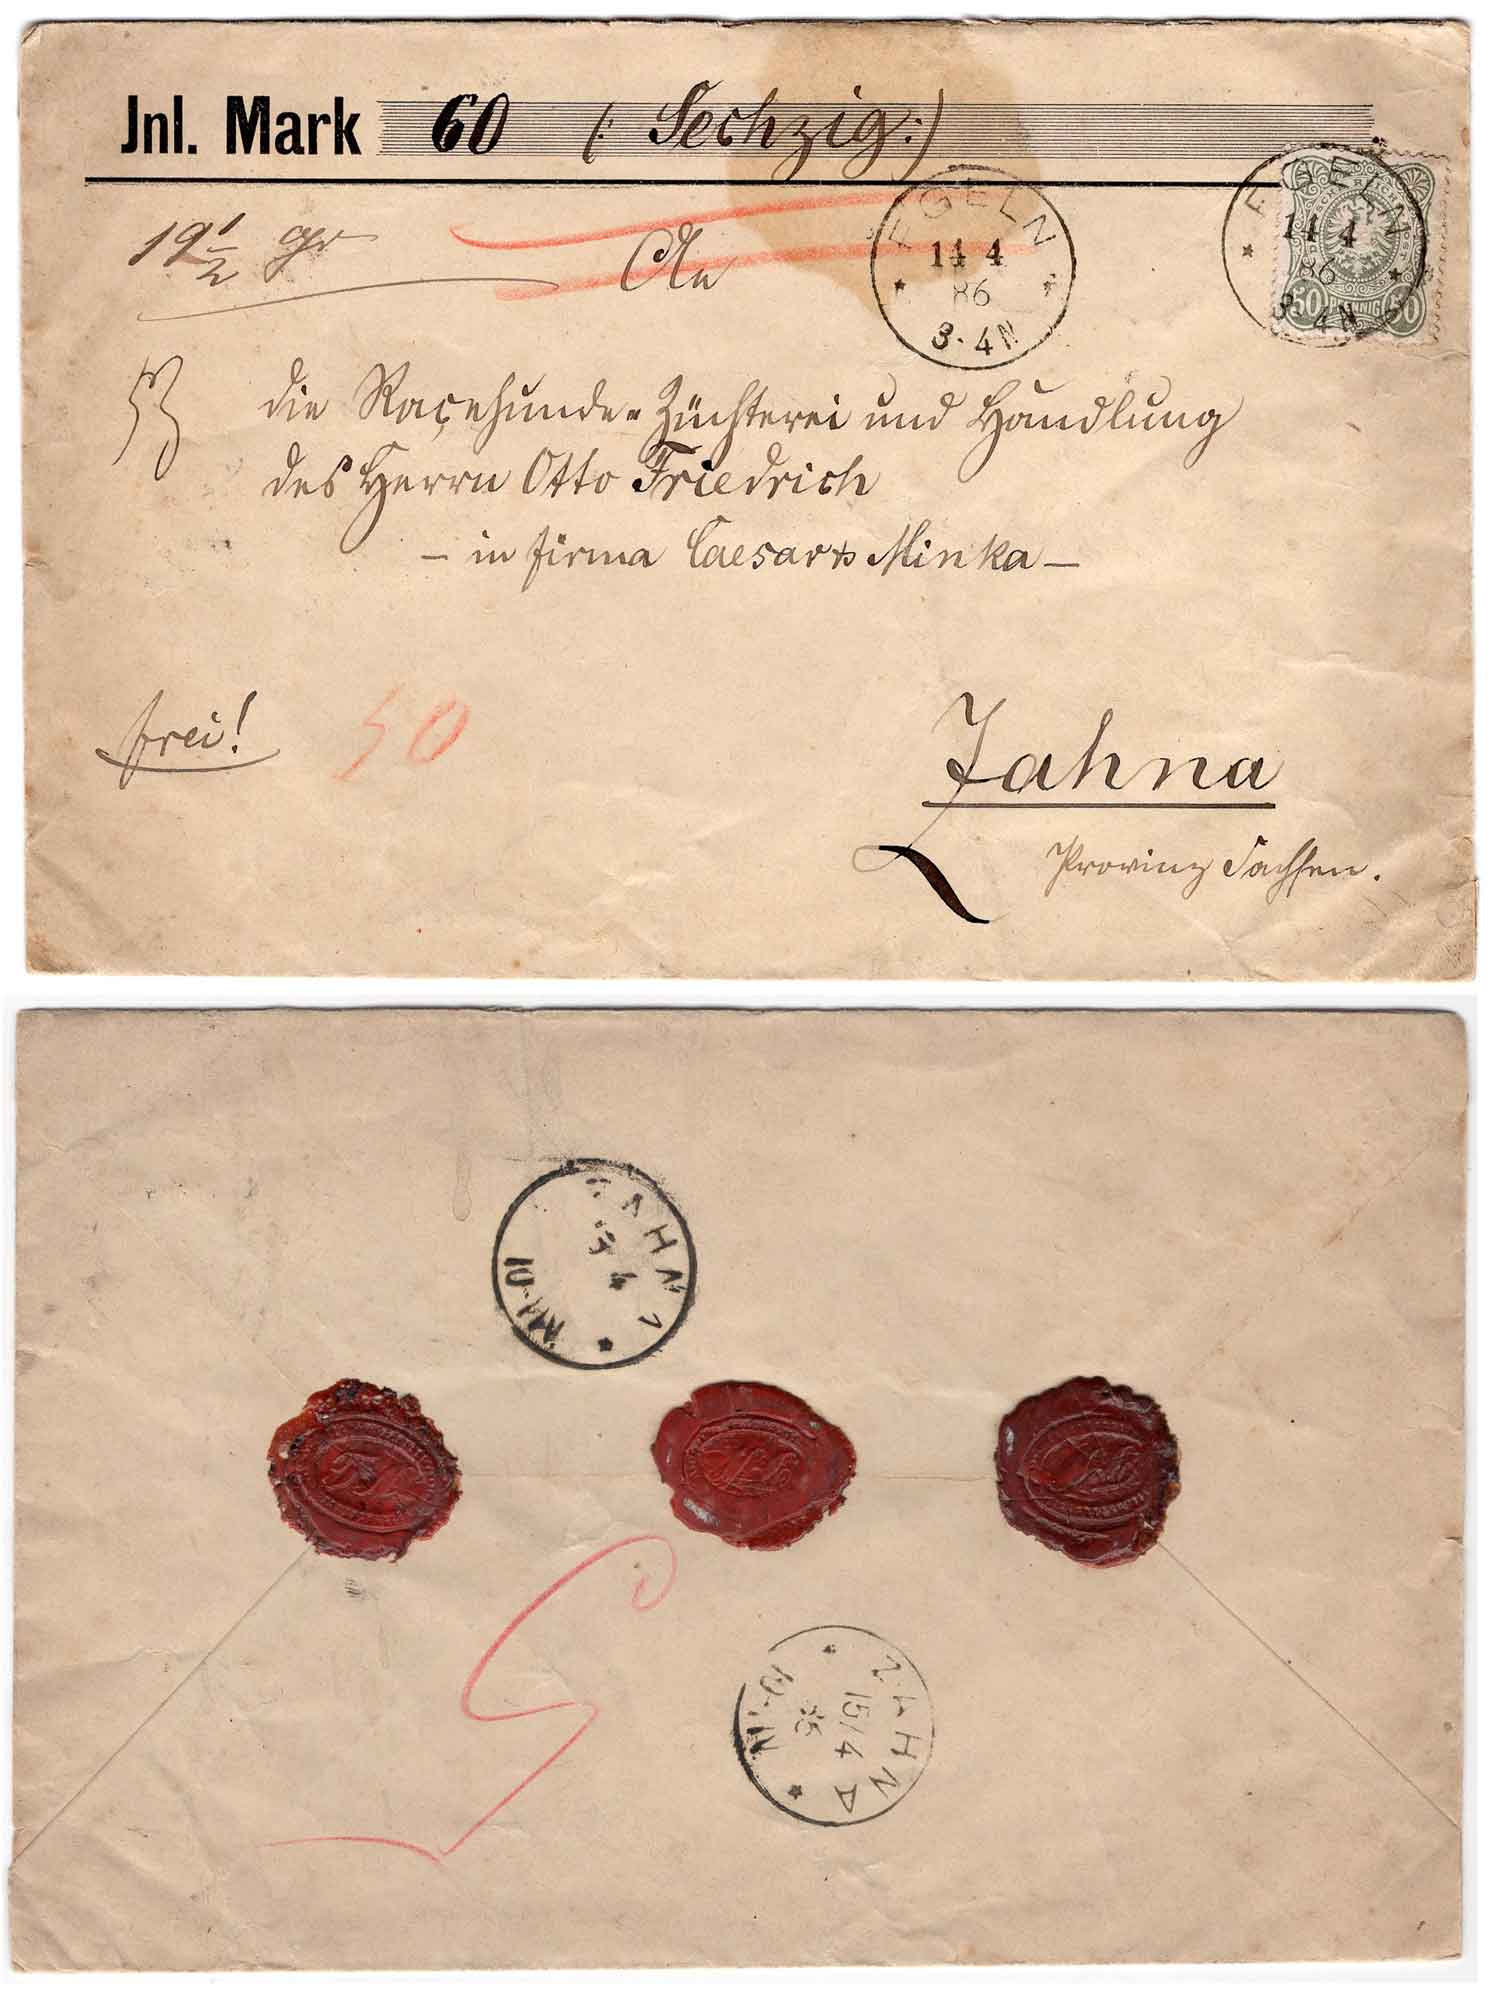 Jnl. Mark 60 (: Sechzig :)
19 1/2 gr
An
EGELN
14 4
86
3-4N
EGELN
14 4
86
3-4N
50 PFENNIG 50
die Raçehunde-Züchterei und Handlung
des Herrn Otto Friedrich
– in Firma Caesar & Minka –
frei!
50
Zahna
Provinz Sachsen.
ZAHNA
4
ZAHNA
15/4
86